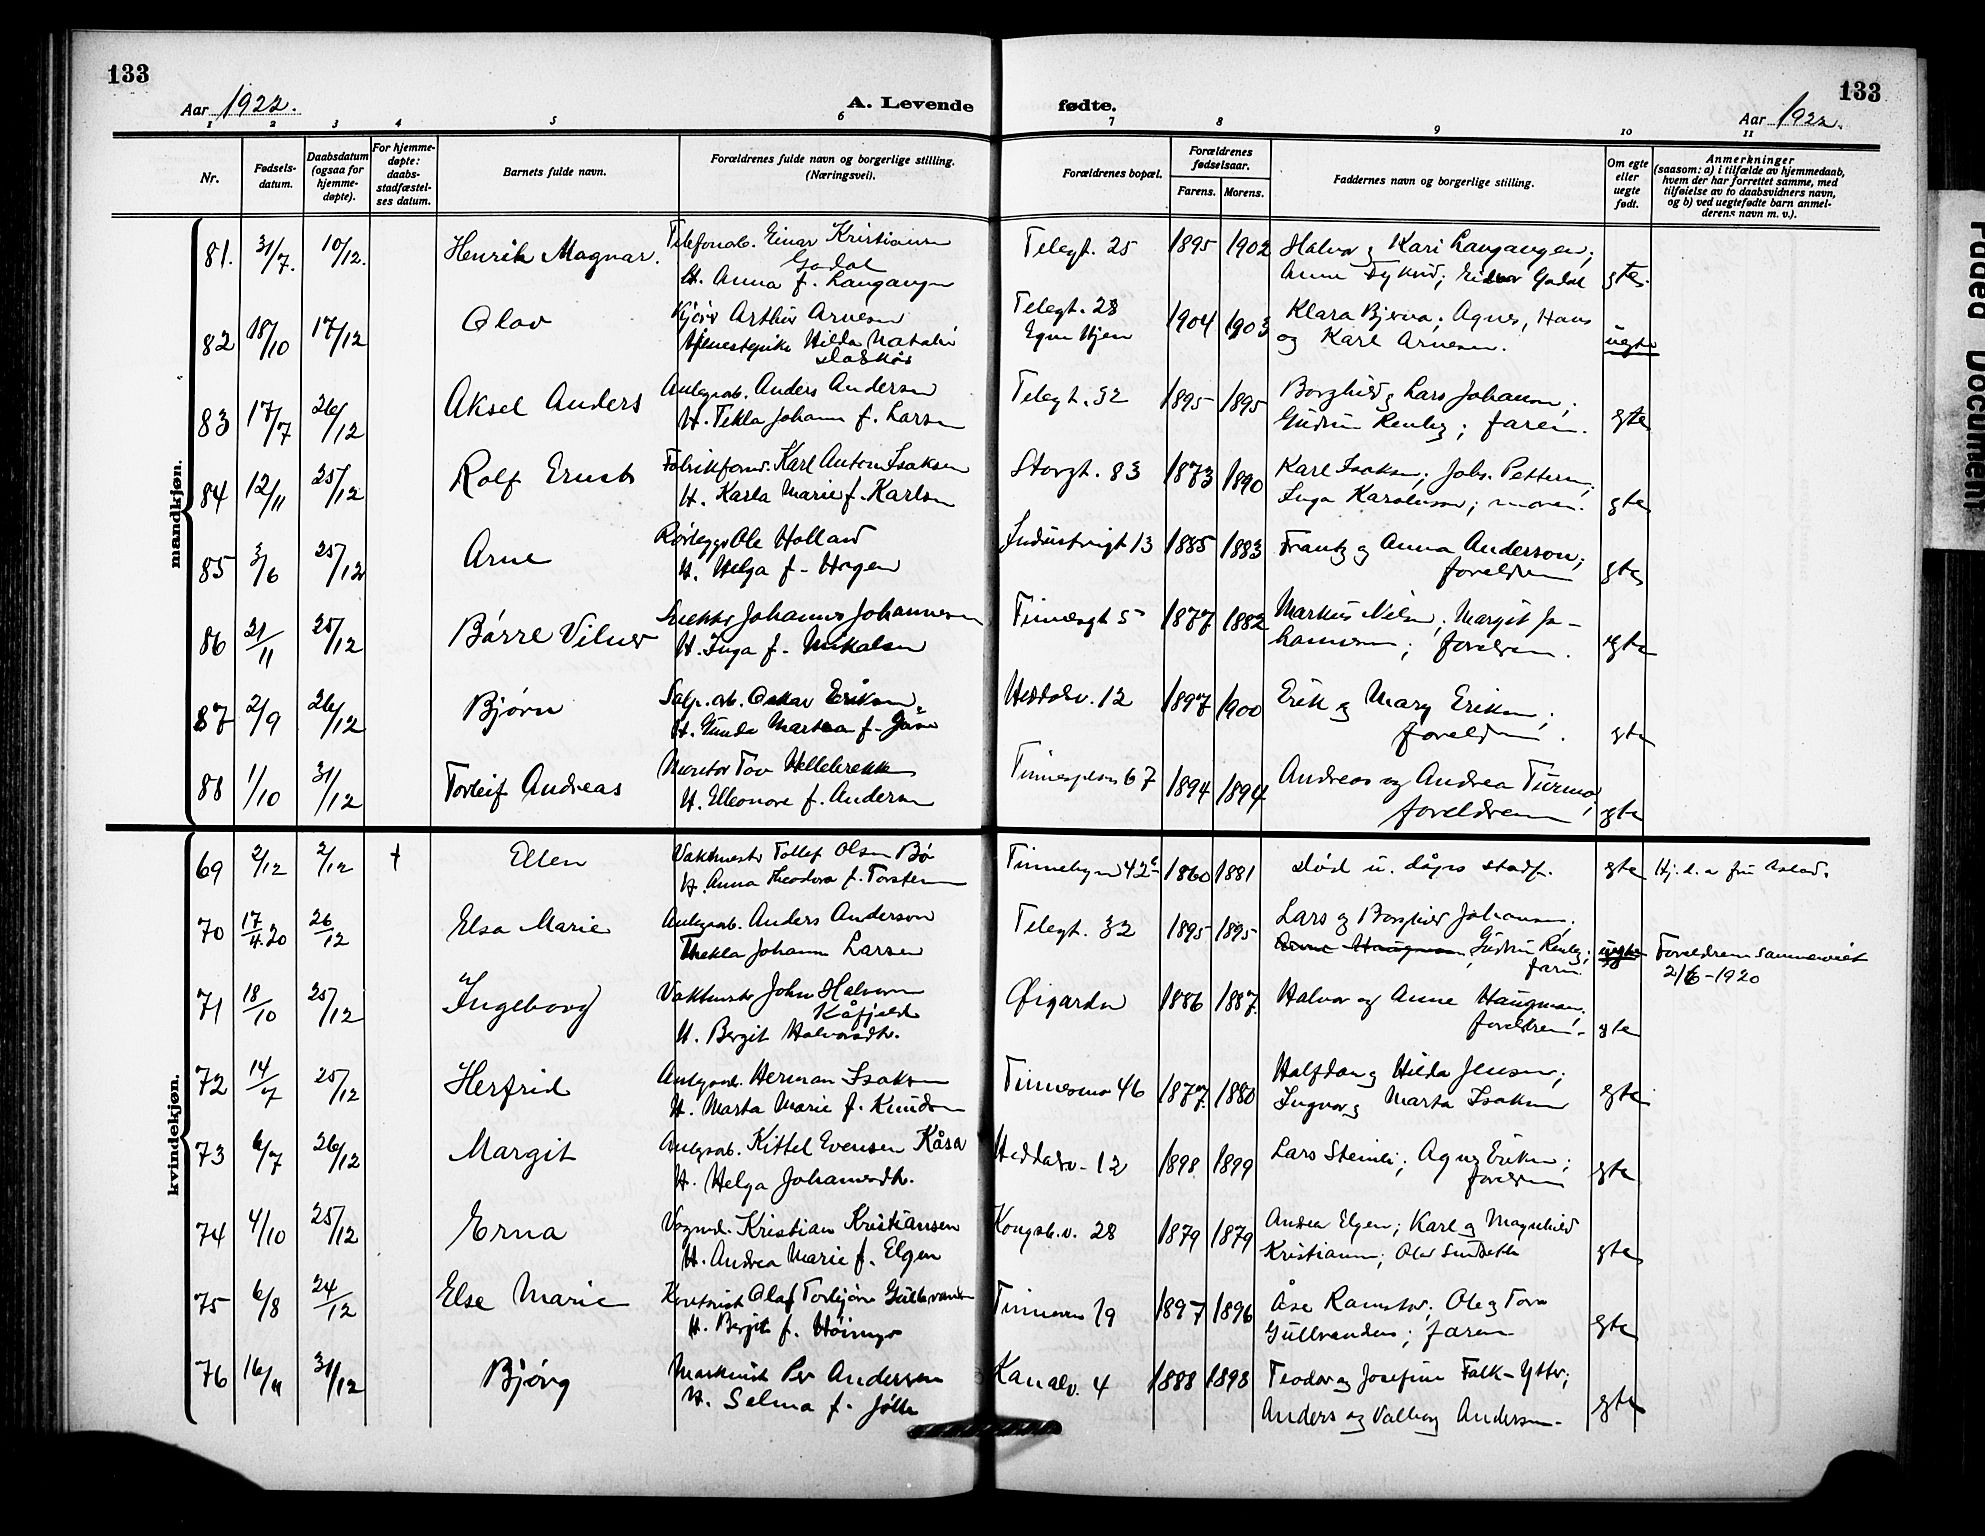 133
Aar 1922.
A. Levende fødte.
Aar 1922.
133
1 2 3 4 5 6 7 8 9 10 11
Nr.
Fødsels-
datum.
Daabsdatum
(ogsaa for
hjemme-
døpte).
For hjemme-
døpte:
daabs-
stadfæstel-
ses datum.
Barnets fulde navn.
Forældrenes fulde navn og borgerlige stilling.
(Næringsvei).
Forældrenes bopæl.
Forældrenes
fødselsaar.
Farens. Morens.
Faddernes navn og borgerlige stilling.
Om egte
eller
uegte
født.
Anmerkninger
(saasom: a) i tilfælde av hjemmedaab,
hvem der har forrettet samme, med
tilføielse av to daabsvidners navn,
og b) ved uegtefødte barn anmel-
derens navn m. v.).
mandkjøn.
81. 31/7. 10/12. Henrik Magnar. Telefonarb. Einar Kristiansen Telegt. 25 1895 1902 Halvor og Kari Langangen;
Godal
H. Anna f. Langangen Anne; Godal gte.
82 18/10 17/12 Olav Arthur Arnesen Telegt. 28 1904 1903 Klara; Agnes, Hans
Tjenestepike Hilda Natalie og Karl Arnesen. uegte
83 17/7 26/12 Aksel Anders Anlegsarb. Anders Andersen Telegt. 32 1895 1895 Borghild og Lars Johansen;
H. Tekla Johanne f. Larsen Gudrun Renberg; faren. gte
84 12/11 25/12 Rolf Ernst Fabrikform. Karl Anton Isaksen Storgt. 83 1873 1890 Karl Isaksen; Johs. Pettersen;
H. Karla Marie f. Karlsen Inga; moren. gte
85 3/6 25/12 Arne Rørlegger Ole Holland Industrigt 13 1885 1883 Frantz og Anna Anderson;
H. Helga f. Hagen foreldrene gte
86 21/11 25/12 Børre Vilner Johannes Johannesen Tinnesgt 5 1877 1882 Markus Nilsen; Margit Jo-
H. Inga f. Mikalsen hannesen; foreldrene. egte
87 2/9 26/12 Bjørn Salp. arb. Oskar Eriksen Heddalsv. 12 1897 1900 Erik og Mary Eriksen;
H. Gunda Martea f. foreldrene. gte
88 1/10 31/12 Torleif Andreas Montør Tov Hellebrekke 67 1894 1894 Andreas og Andrea Turmo,
H. Elleonore f. Andersen foreldrene gte
kvindekjøn.
69 2/12 2/12 † Ellen Vaktmester Tollef Olsen Bø Tinnebyen 42c 1860 1881 Død u. dåps stadf. gte Hj. d. a fru Asland.
H. Anna Theodora f. Torstensen
70 17/4.20 26/12 Elsa Marie Anlegsarb. Anders Anderson Telegt. 32 1895 1895 Lars og Borghild Johansen;
Thekla Johanne Larsen Anne Haugman, Gudrun Renberg; uegte Foreldrene sammenviet
faren. 2/6-1920
71 18/10 25/12 Ingeborg Vaktmester John Halvorsen Øigarden 1886 1887. Halvor og Anne Haugman;
Kåfjeld
H. Bergit Halvorsdtr. foreldrene. gte
72 14/7 25/12 Herfrid Anlegsarb. Herman Isaksen Tinnesmo 46 1877. 1880 Halfdan og Hilda Jensen;
H. Marta Marie f. Knudsen Ingvar og Marta Isaksen gte
73 6/7 26/12 Margit Anlegsarb. Kittel Evensen Kåsa Heddalsv. 12 1898 1899 Lars; Agnes Eriksen;
H. Helga Johannesdtr. foreldrene gte
74 4/10 25/12 Erna Vognmd. Kristian Kristiansen Kongsb.v. 28 1879 1879 Andrea Elgen; Karl og Magnhild
H. Andrea Marie f. Elgen Kristiansen; Olav gte
75 6/8 24/12 Else Marie Kontorist Olaf Torbjørn 19 1897 1896 Åse; Ole og Tora
H. Bergit f.; faren gte
76 16/9 31/12 Bjørg Maskinist Per Andersen Kanalv. 4 1888 1898 Teodor og Josefine Falk-Ytter;
H. Selma f. Anders og Valborg Andersen. gte
Faded Document